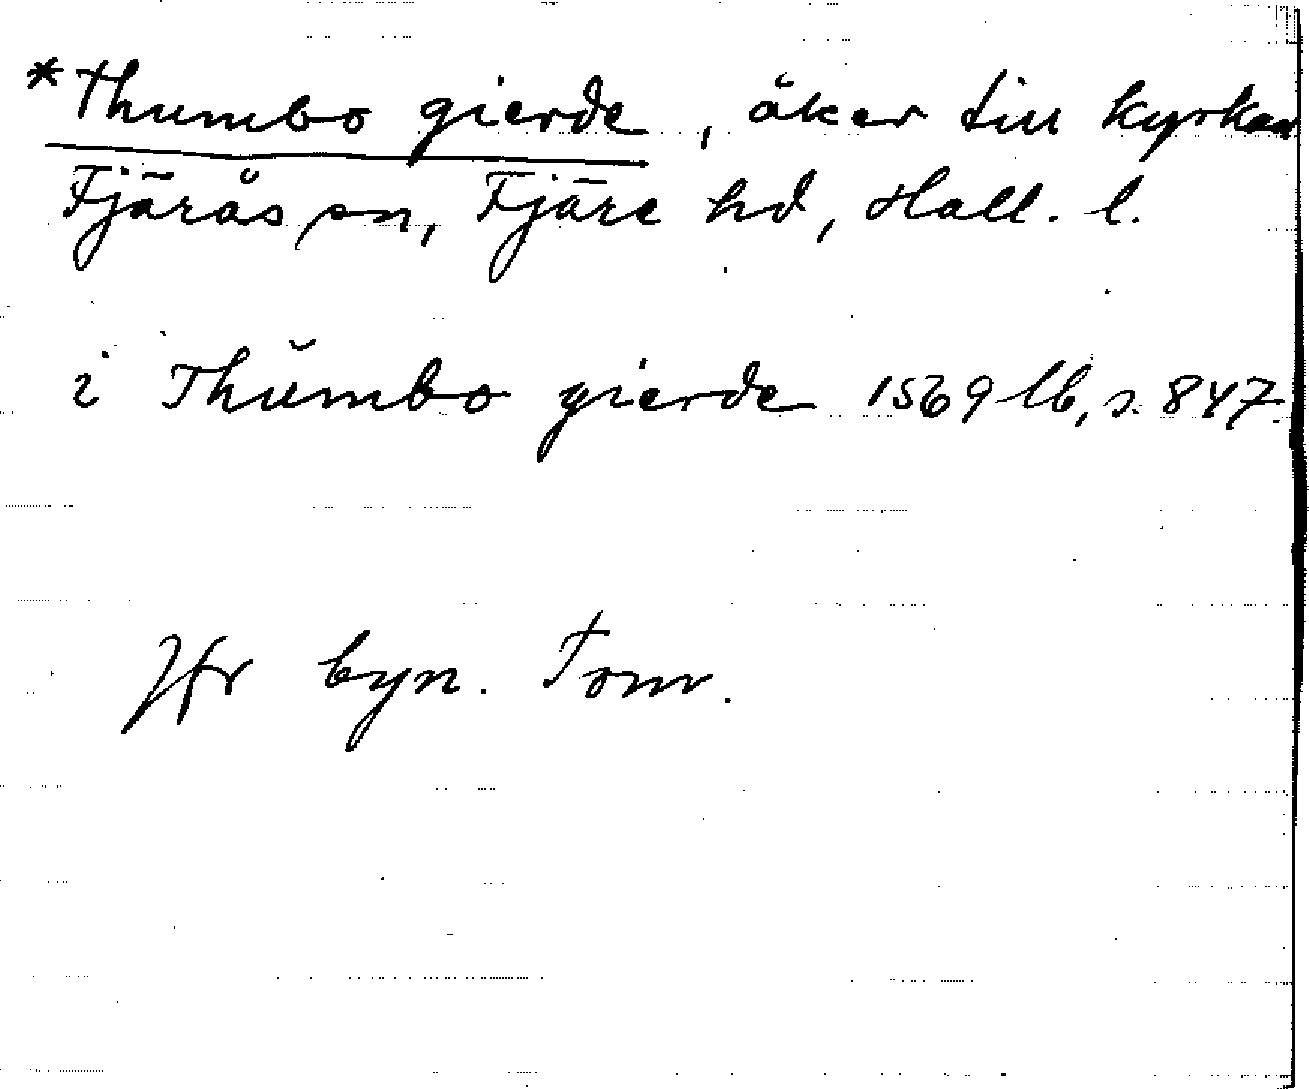 *Thumbo gierde, åker till kyrkan
Fjärås sn, Fjäre hd, Hall. l.
i Thŭmbo gierde 1569 lb, s. 847
Jfr byn. Tom.